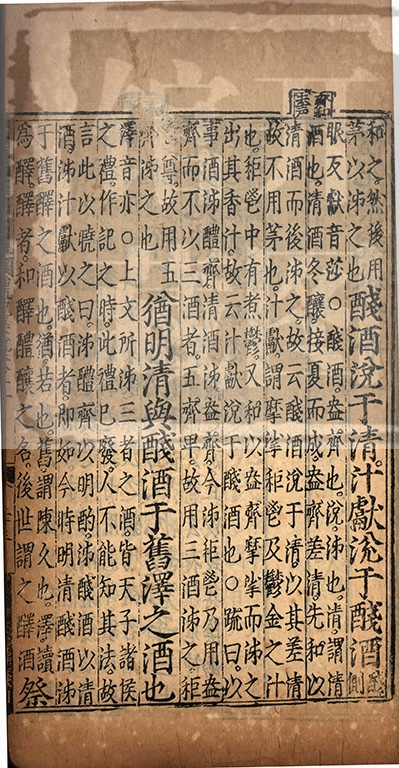 和之然後用
茅以泲之也
醆酒涚于清汁獻涚于醆酒
醆側
眼反獻音莎○醆酒盎齊也涚泲也清謂清
酒也清酒冬釀接夏而成盎齊差清先和以
清酒而後泲之故云醆酒涚于清以其差清
故不用茅也汁獻謂摩挲秬鬯及鬱金之汁
也秬鬯中有煮鬱又和以盎齊摩挲而泲之
出其香汁故云汁獻涚于醆酒也○疏曰以
事酒泲醴齊清酒泲盎齊今泲秬鬯乃用盎
齊而不以三酒者五齊卑故用三酒泲之秬
鬯尊故用五
齊泲之也
猶明清與醆酒于舊澤之酒也
澤音亦○上文所泲三者之酒皆天子諸侯
之禮作記之時此禮已廢人不能知其法故
言此以曉之曰泲醴齊以明酌泲醆酒以清
酒泲汁獻以醆酒者即如今時明清醆酒泲
于舊醳之酒也猶若也舊謂陳久也澤讀
為醳醳者和醳醴釀之名後世謂之醳酒
祭